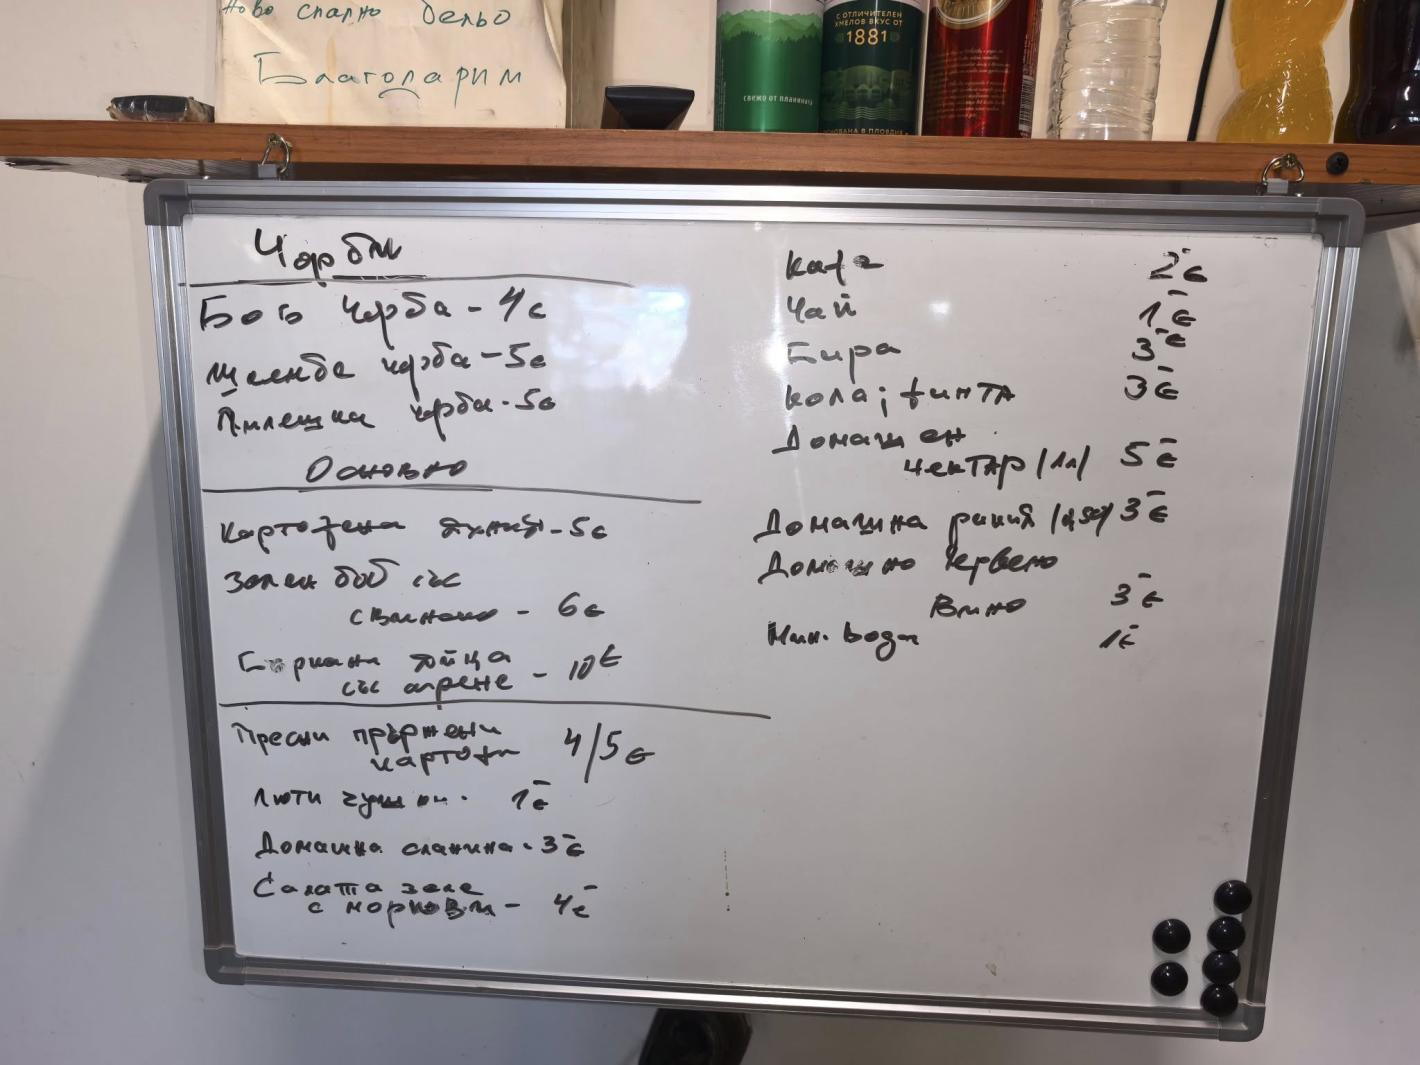 Ново спално бельо
Благодарим
СВЕЖО ОТ ПЛАНИНАТА
С ОТЛИЧИТЕЛЕН
ХМЕЛОВ ВКУС ОТ
1881
ОСНОВАНА В ПЛОВДИВ
Чорби
Боб чорба - 4€
Шкембе чорба - 5€
Пилешка чорба - 5€
Основно
Картофена яхния - 5€
Зелен боб със
свинско - 6€
Бъркани яйца
със сирене - 10€
Пресни пържени
картофи 4/5€
Люти чушки - 1€
Домашна сланина - 3€
Салата зеле
с моркови - 4€
Кафе 2€
Чай 1€
Бира 3€
Кола; фанта 3€
Домашен
нектар /1л/ 5€
Домашна ракия /0,50/ 3€
Домашно червено
вино 3€
Мин. вода 1€